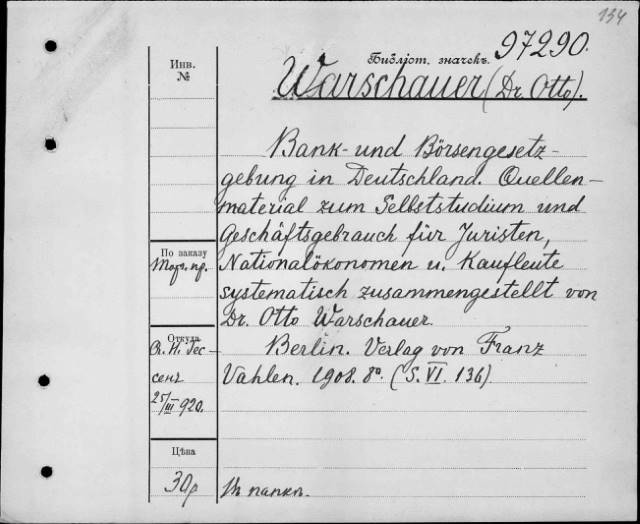 134
Библіот. значекъ. 97290.
Инв.
№
Warschauer (Dr. Otto).
Bank- und Börsengesetz-
gebung in Deutschland. Quellen-
material zum Selbststudium und
Geschäftsgebrauch für Juristen,
Nationalökonomen u. Kaufleute
systematisch zusammengestellt von
Dr. Otto Warschauer.
Berlin. Verlag von Franz
Vahlen. 1908. 8º. (S. VI. 136).
По заказу
Откуда
сенъ
25/III 920.
Цѣна
30р
папкп.